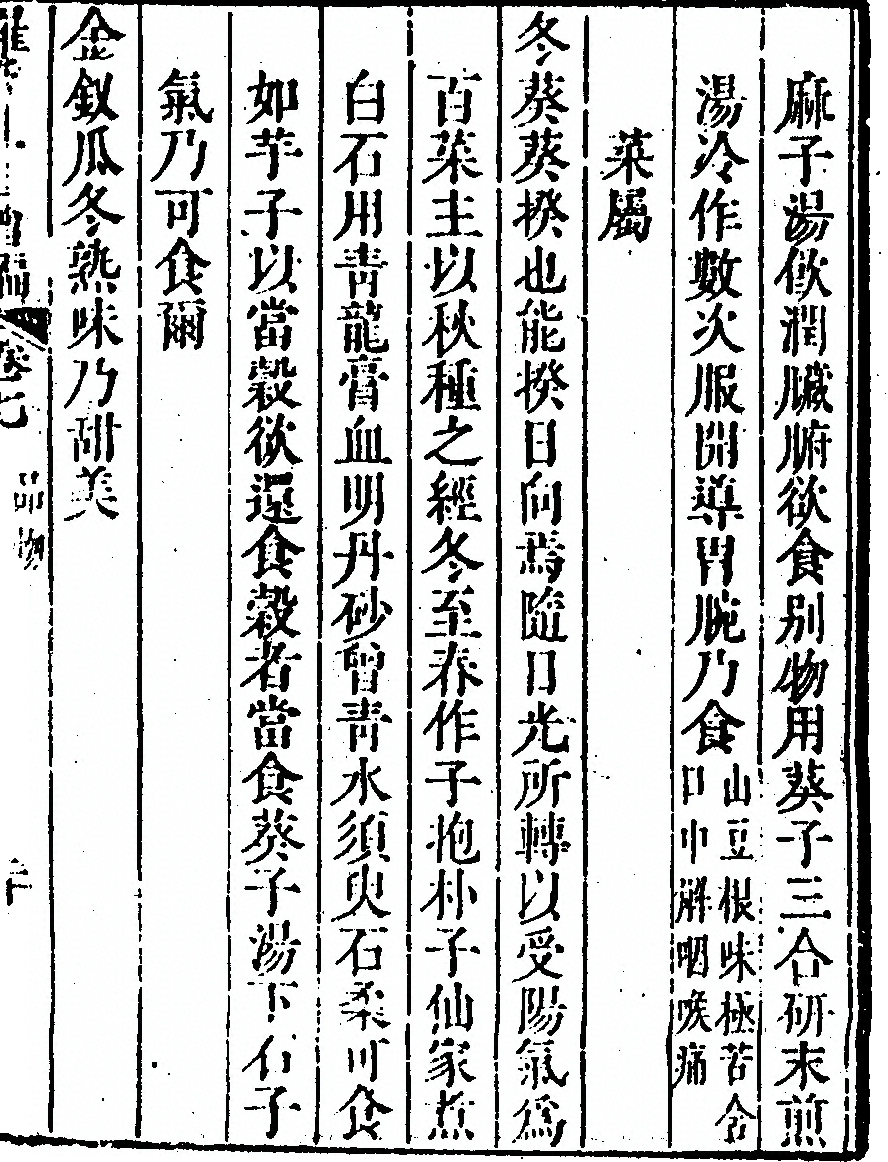 麻子湯飲潤臟腑欲食别物用葵子三合研末煎
湯冷作數次服開導胃脘乃食山豆根味極苦含口中解咽喉痛
菜屬
冬葵葵揆也能揆日向焉隨日光所轉以受陽氣爲
百菜主以秋種之經冬至春作子抱朴子仙家煮
白石用青龍膏血明丹砂曾青水須臾石柔可食
如芋子以當穀欲還食穀者當食葵子湯下石子
氣乃可食爾
金釵瓜冬熟味乃甜美
卷七
品物